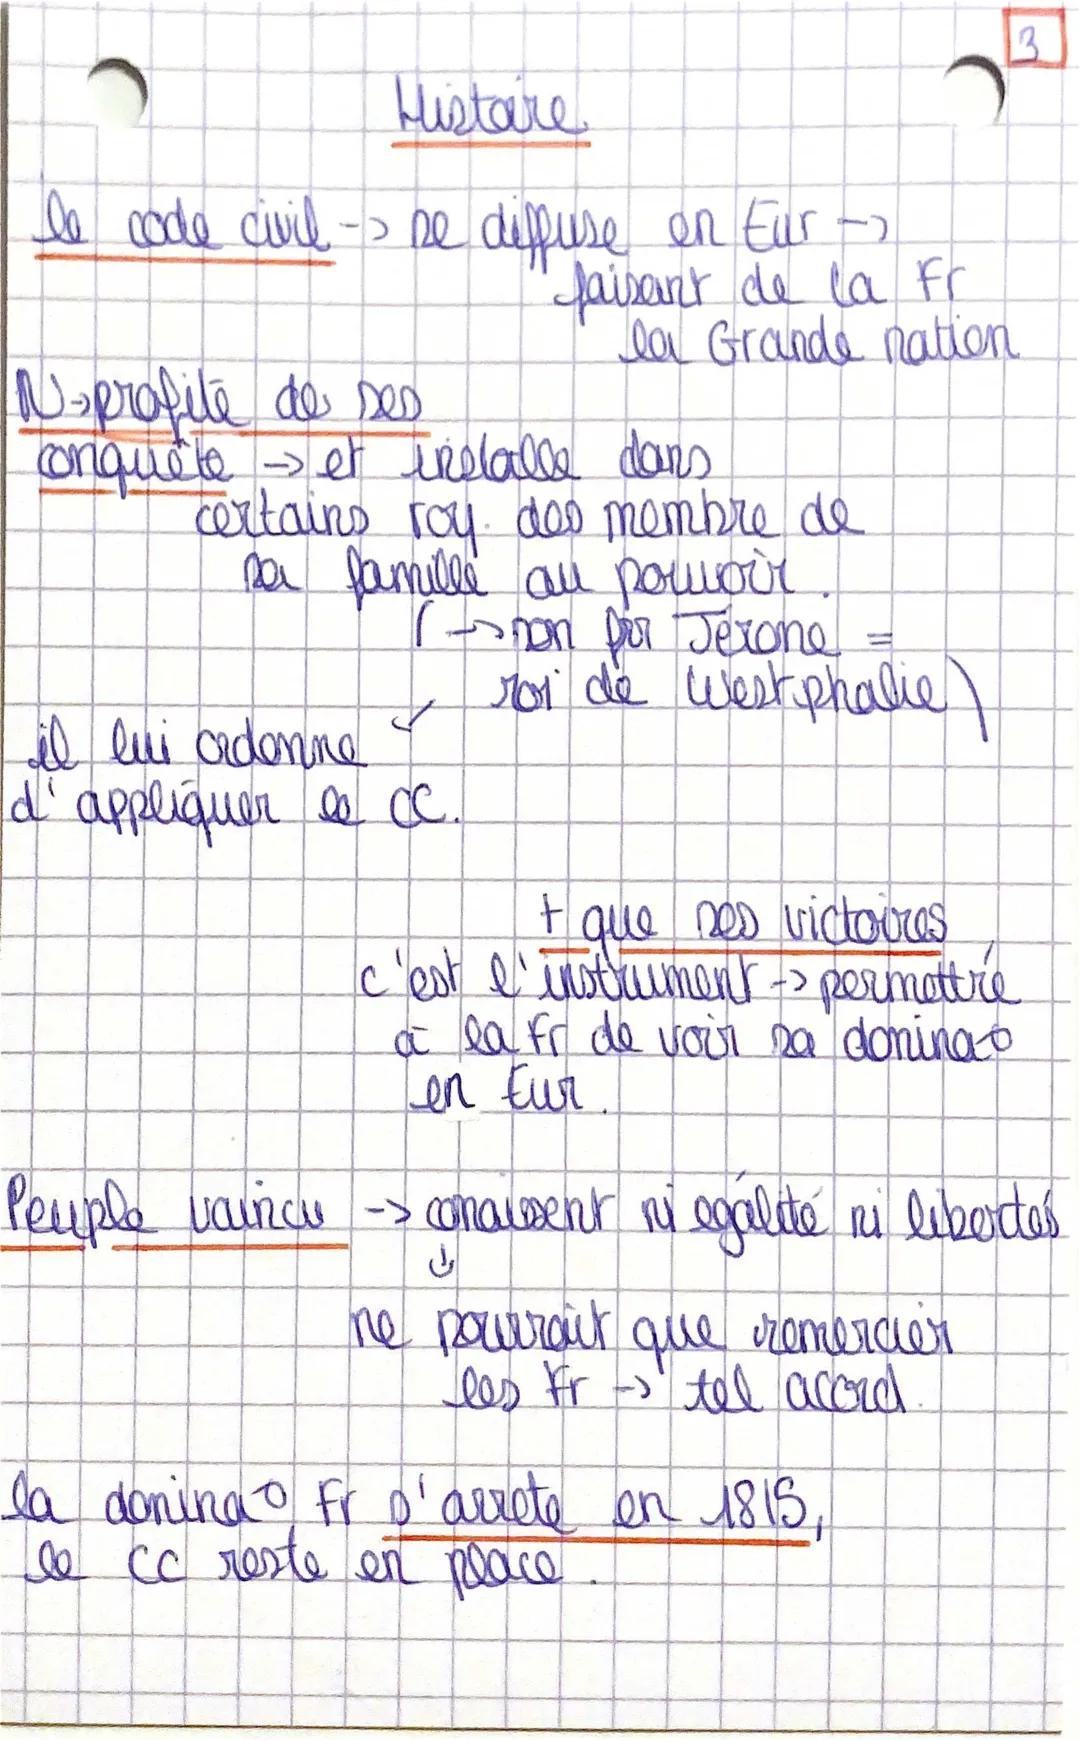 3
Histoire
le code civil -> se diffuse en Eur ->
faisant de la Fr
la Grande nation
N->profite de ses
conquête -> et installe dans
certains roy. des membre de
sa famille au pouvoir.
(->son frr Jérone =
roi de Westphalie)
il lui ordonne
d'appliquer le CC.
+ que ses victoires
c'est l'instrument -> permettre
à la Fr de voir sa domina°
en Eur.
Peuple vaincu -> conaissent ni égalité ni libertés
ne pourrait que remercier
les Fr -> tel accord.
la domina° Fr s'arrete en 1815,
le CC reste en place.